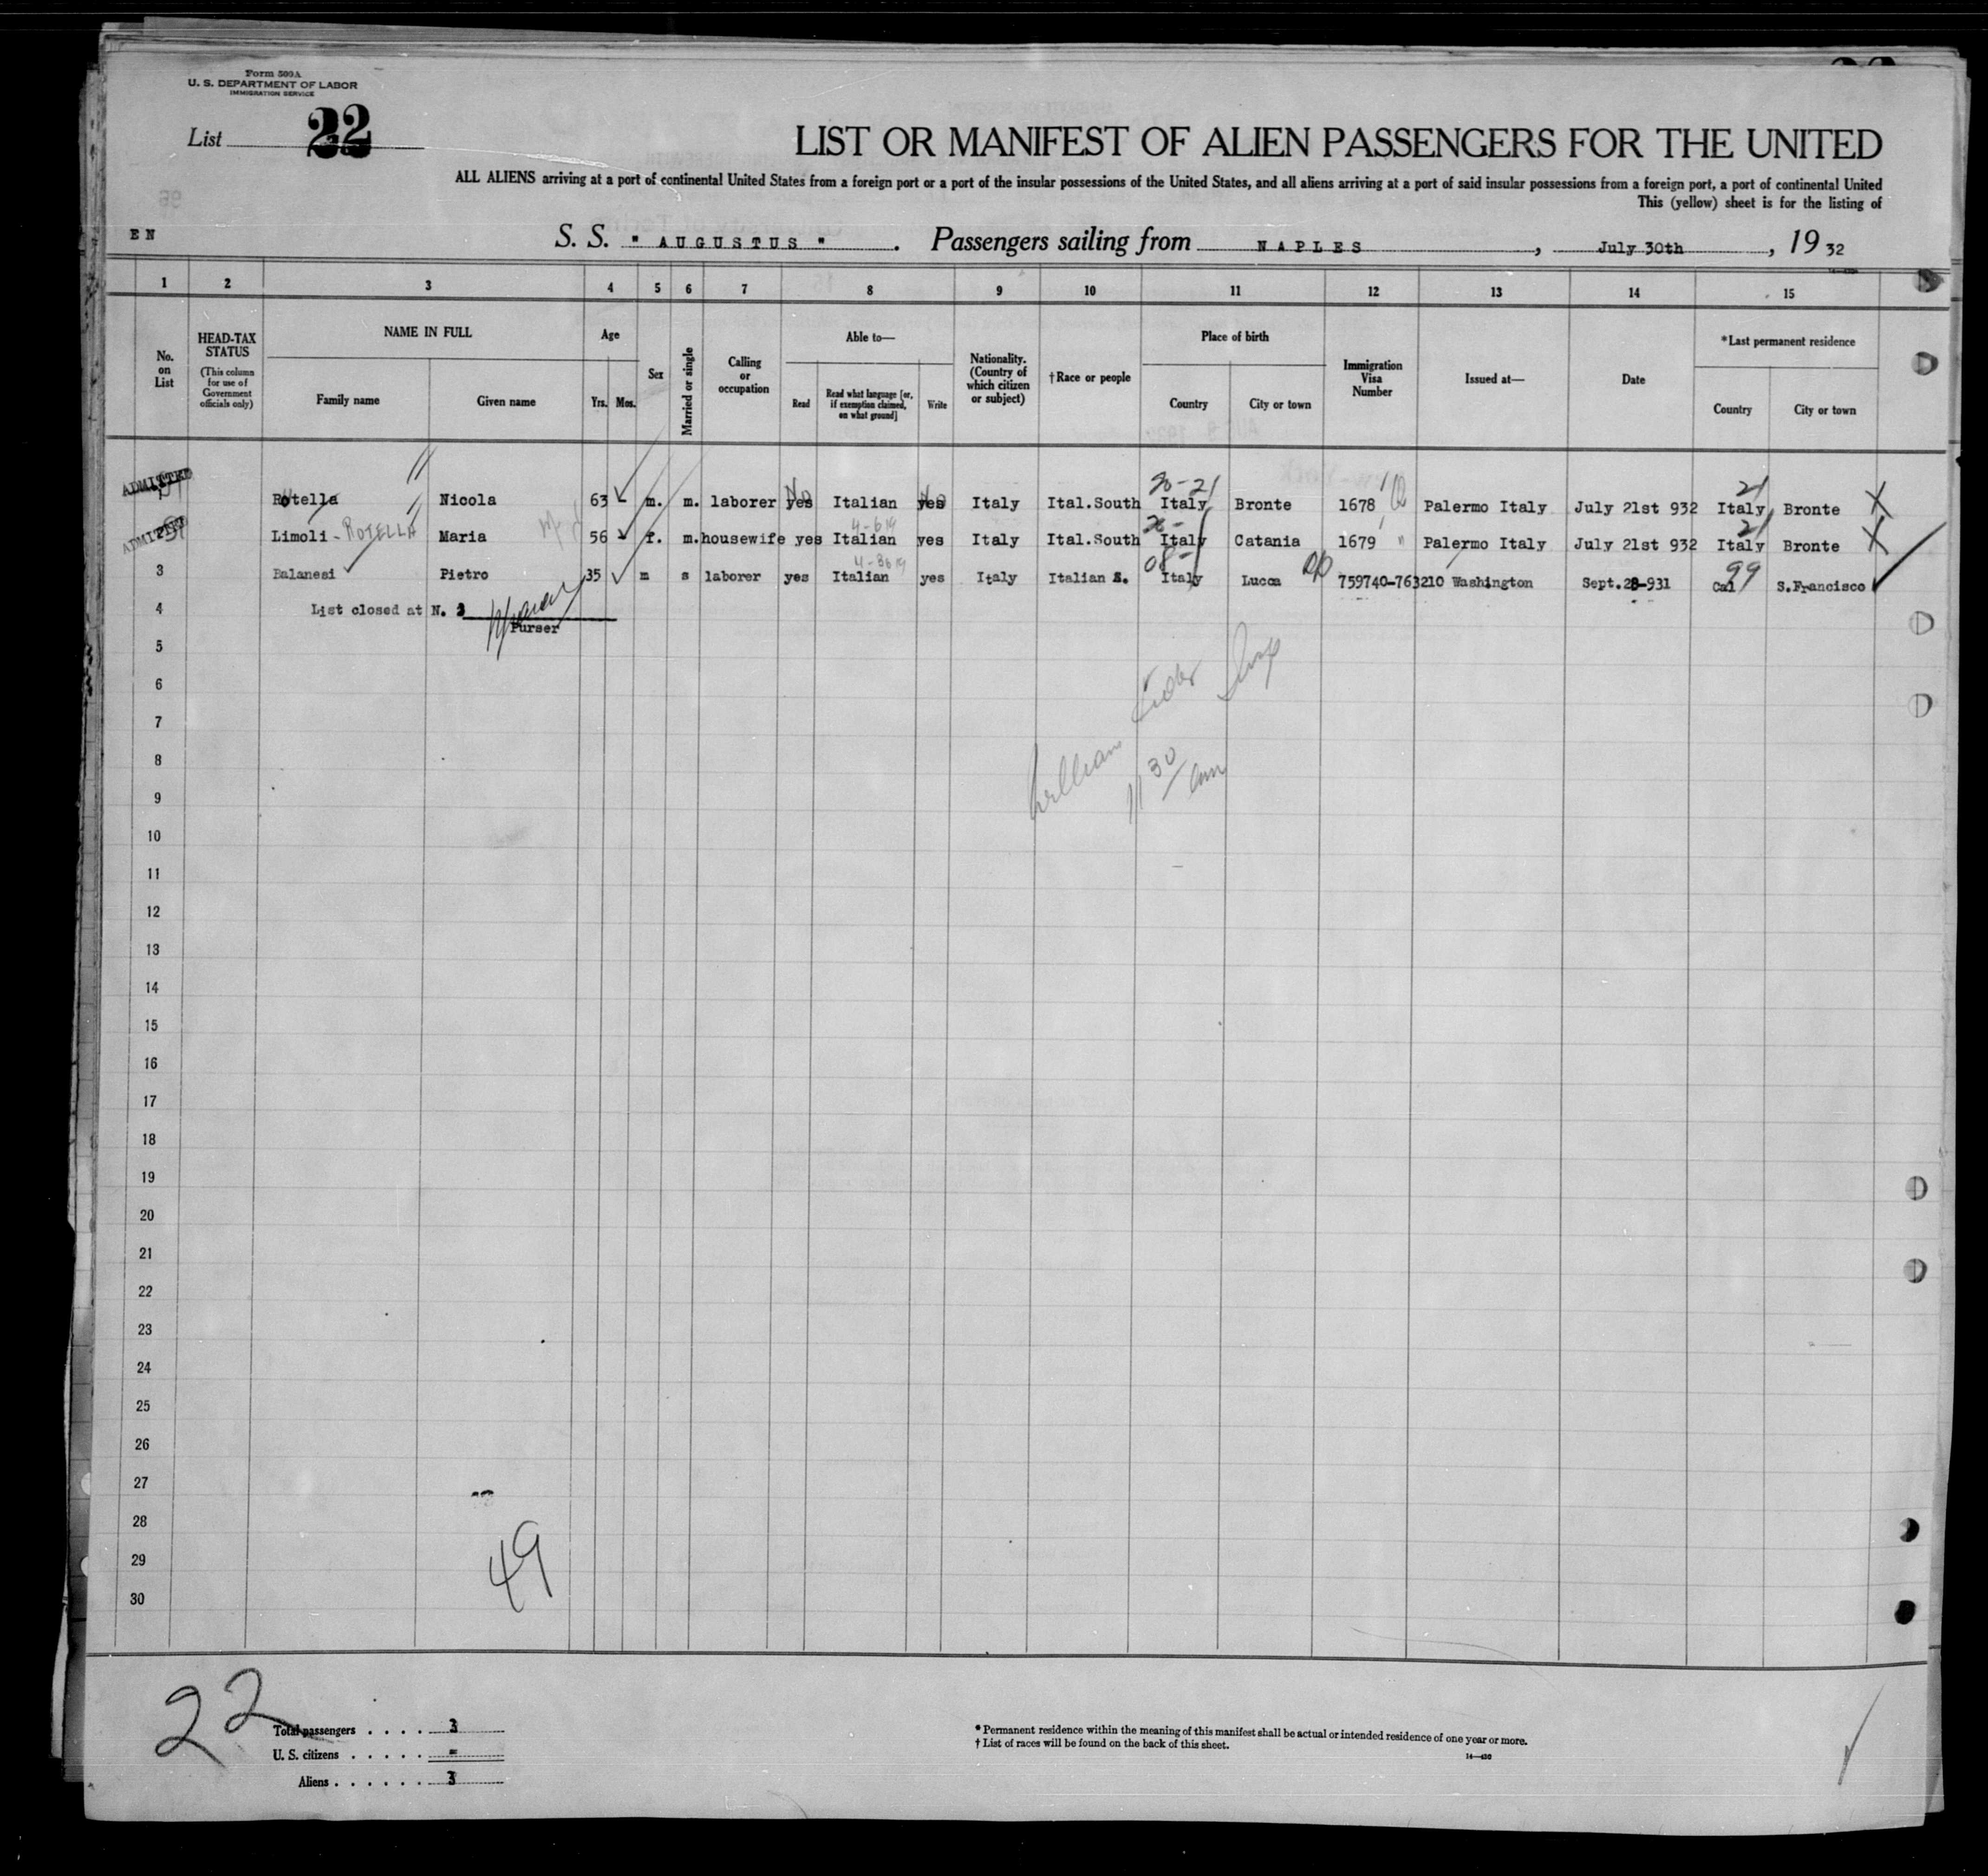 Form 500A
U. S. DEPARTMENT OF LABOR
IMMIGRATION SERVICE
List 22
LIST OR MANIFEST OF ALIEN PASSENGERS FOR THE UNITED
ALL ALIENS arriving at a port of continental United States from a foreign port or a port of the insular possessions of the United States, and all aliens arriving at a port of said insular possessions from a foreign port, a port of continental United
This (yellow) sheet is for the listing of
EN
S. S. "AUGUSTUS". Passengers sailing from NAPLES, July 30th, 19 32
1 2 3 4 5 6 7 8 9 10 11 12 13 14 15
No. on List
HEAD-TAX STATUS
(This column for use of Government officials only)
NAME IN FULL
Family name
Given name
Age
Yrs.
Mos.
Sex
Married or single
Calling or occupation
Able to—
Read
Read what language [or, if exemption claimed, on what ground]
Write
Nationality. (Country of which citizen or subject)
†Race or people
Place of birth
Country
City or town
Immigration Visa Number
Issued at—
Date
*Last permanent residence
Country
City or town
20-21 21
ADMITTED Rotella Nicola 63 m. m. laborer yes No Italian yes No Italy Ital.South Italy Bronte 1678 Palermo Italy July 21st 932 Italy Bronte X
4-619 21
ADMITTED Limoli - ROTELLA Maria 56 f. m. housewife yes Italian yes Italy Ital.South Italy Catania 1679 " Palermo Italy July 21st 932 Italy Bronte X
08- 99
3 Balanesi Pietro 35 m s laborer yes Italian yes Italy Italian S. Italy Lucca 759740-763210 Washington Sept.28-931 Cal S.Francisco
4 List closed at N. 3
Purser
5
6
7
8
9
10
11
12
13
14
15
16
17
18
19
20
21
22
23
24
25
26
27
28
29
30
William
11 30 am
49
22
Total passengers . . . . 3
U. S. citizens . . . . . -
Aliens . . . . . . 3
* Permanent residence within the meaning of this manifest shall be actual or intended residence of one year or more.
† List of races will be found on the back of this sheet.
14—430